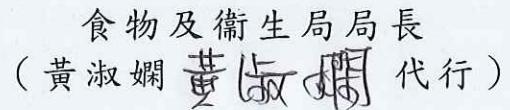 食物及衞生局局長
（黃淑嫻 黃淑嫻 代行）